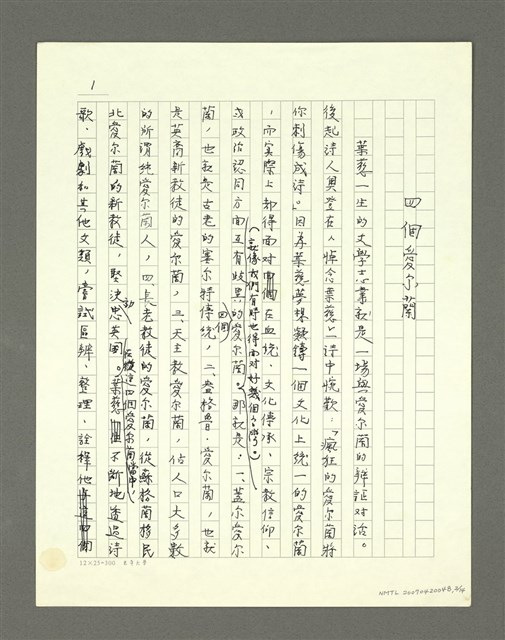 1
四個愛尔蘭
葉慈一生的文學志業就是一場與愛尔蘭的辯証對話。
後起詩人奧登在「悼念葉慈」一詩中慨歎：「瘋狂的愛尔蘭將
你刺傷成詩。」因為葉慈夢想凝鑄一個文化上統一的愛尔蘭
，而實際上都得面對四個在血統、文化傳承、宗教信仰、
或政治認同方面互有歧異的愛尔蘭。
（妾像我們有時也得面對好幾個台灣。）
那就是：一、蓋尔愛尔
蘭，也就是古老的塞尔特傳統，二、盎格魯·愛尔蘭，也就
是英裔新教徒的愛尔蘭，三、天主教愛尔蘭，佔人口大多數
的所謂純愛尔蘭人，四、長老教徒的愛尔蘭，從蘇格蘭移民
北愛尔蘭的新教徒，堅決効忠英國。葉慈在這四個愛尔蘭當中，不斷地透過詩
歌、戲劇和其他文類，嘗試區辨、整理、詮釋他
12×25=300 東華大學
NMTL 20070420048, 2/4